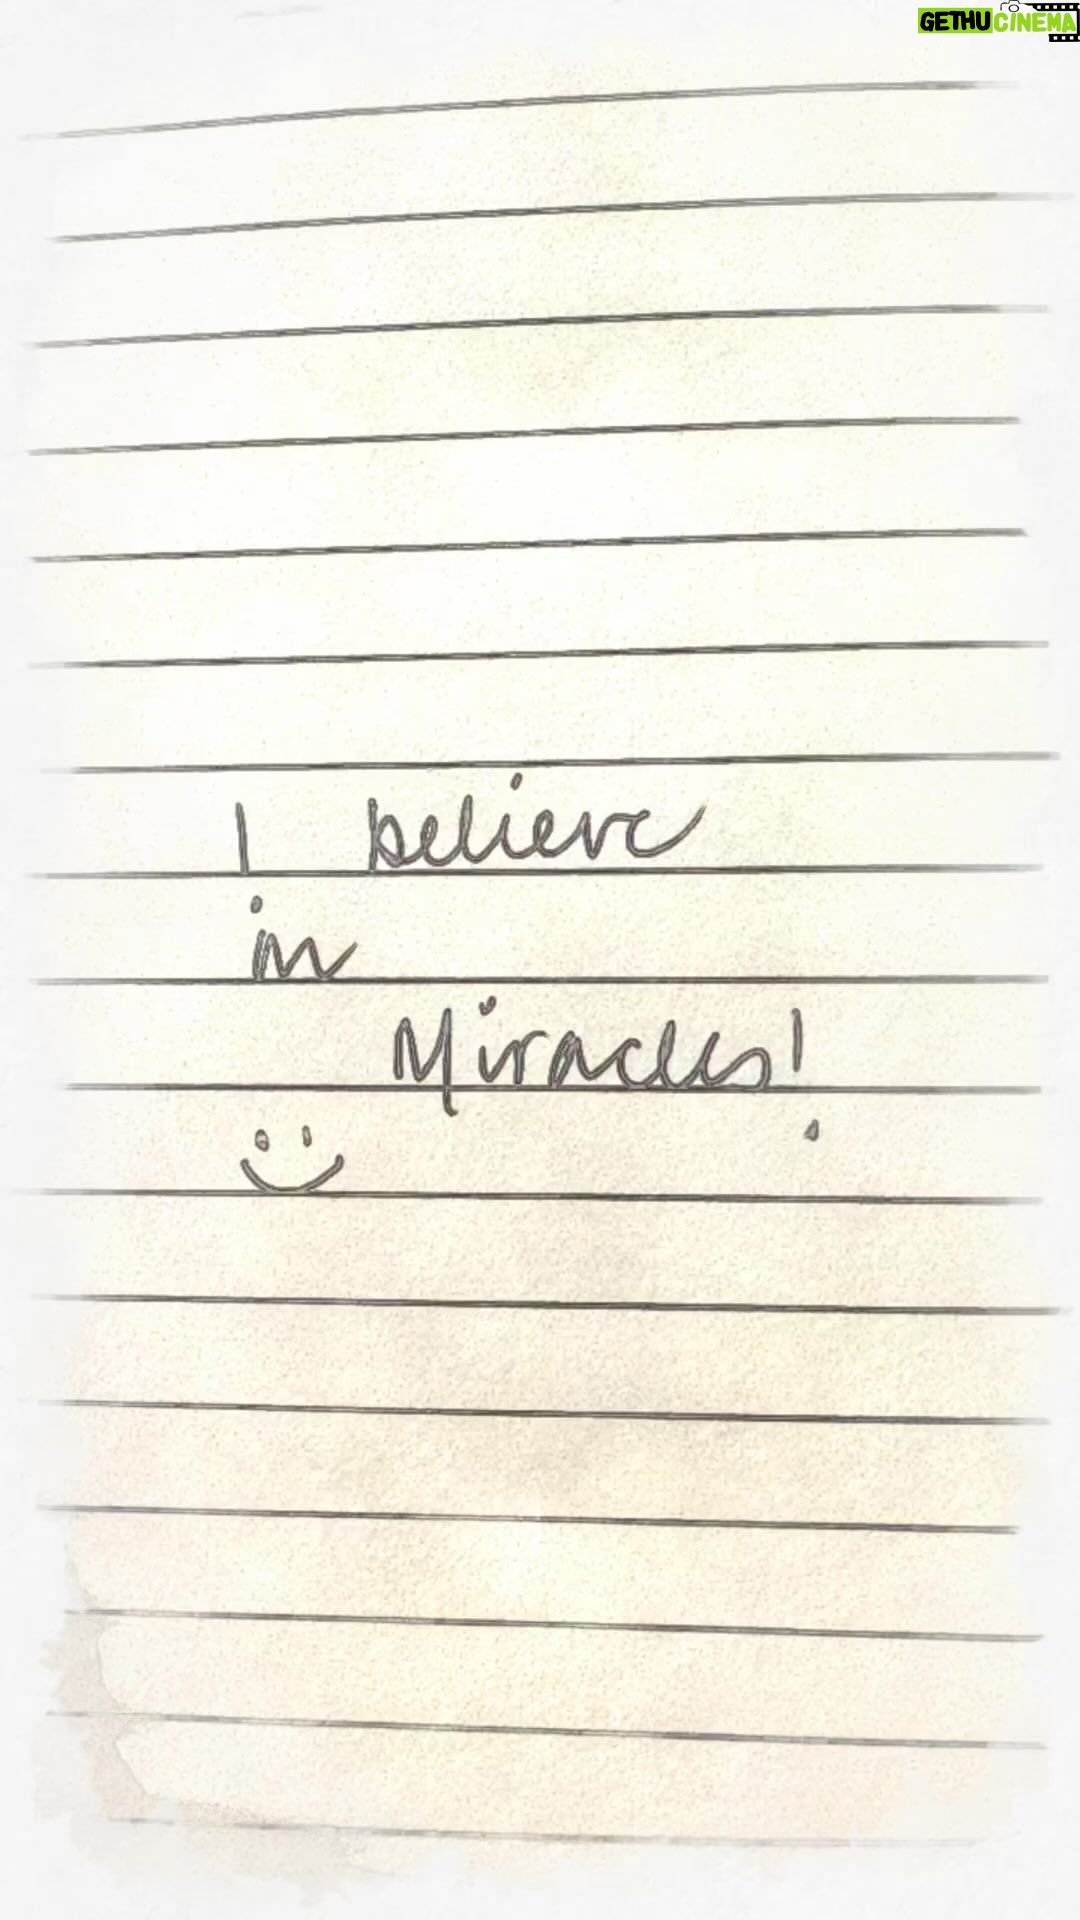 GETHUCINEMA
I believe
in
Miracles!